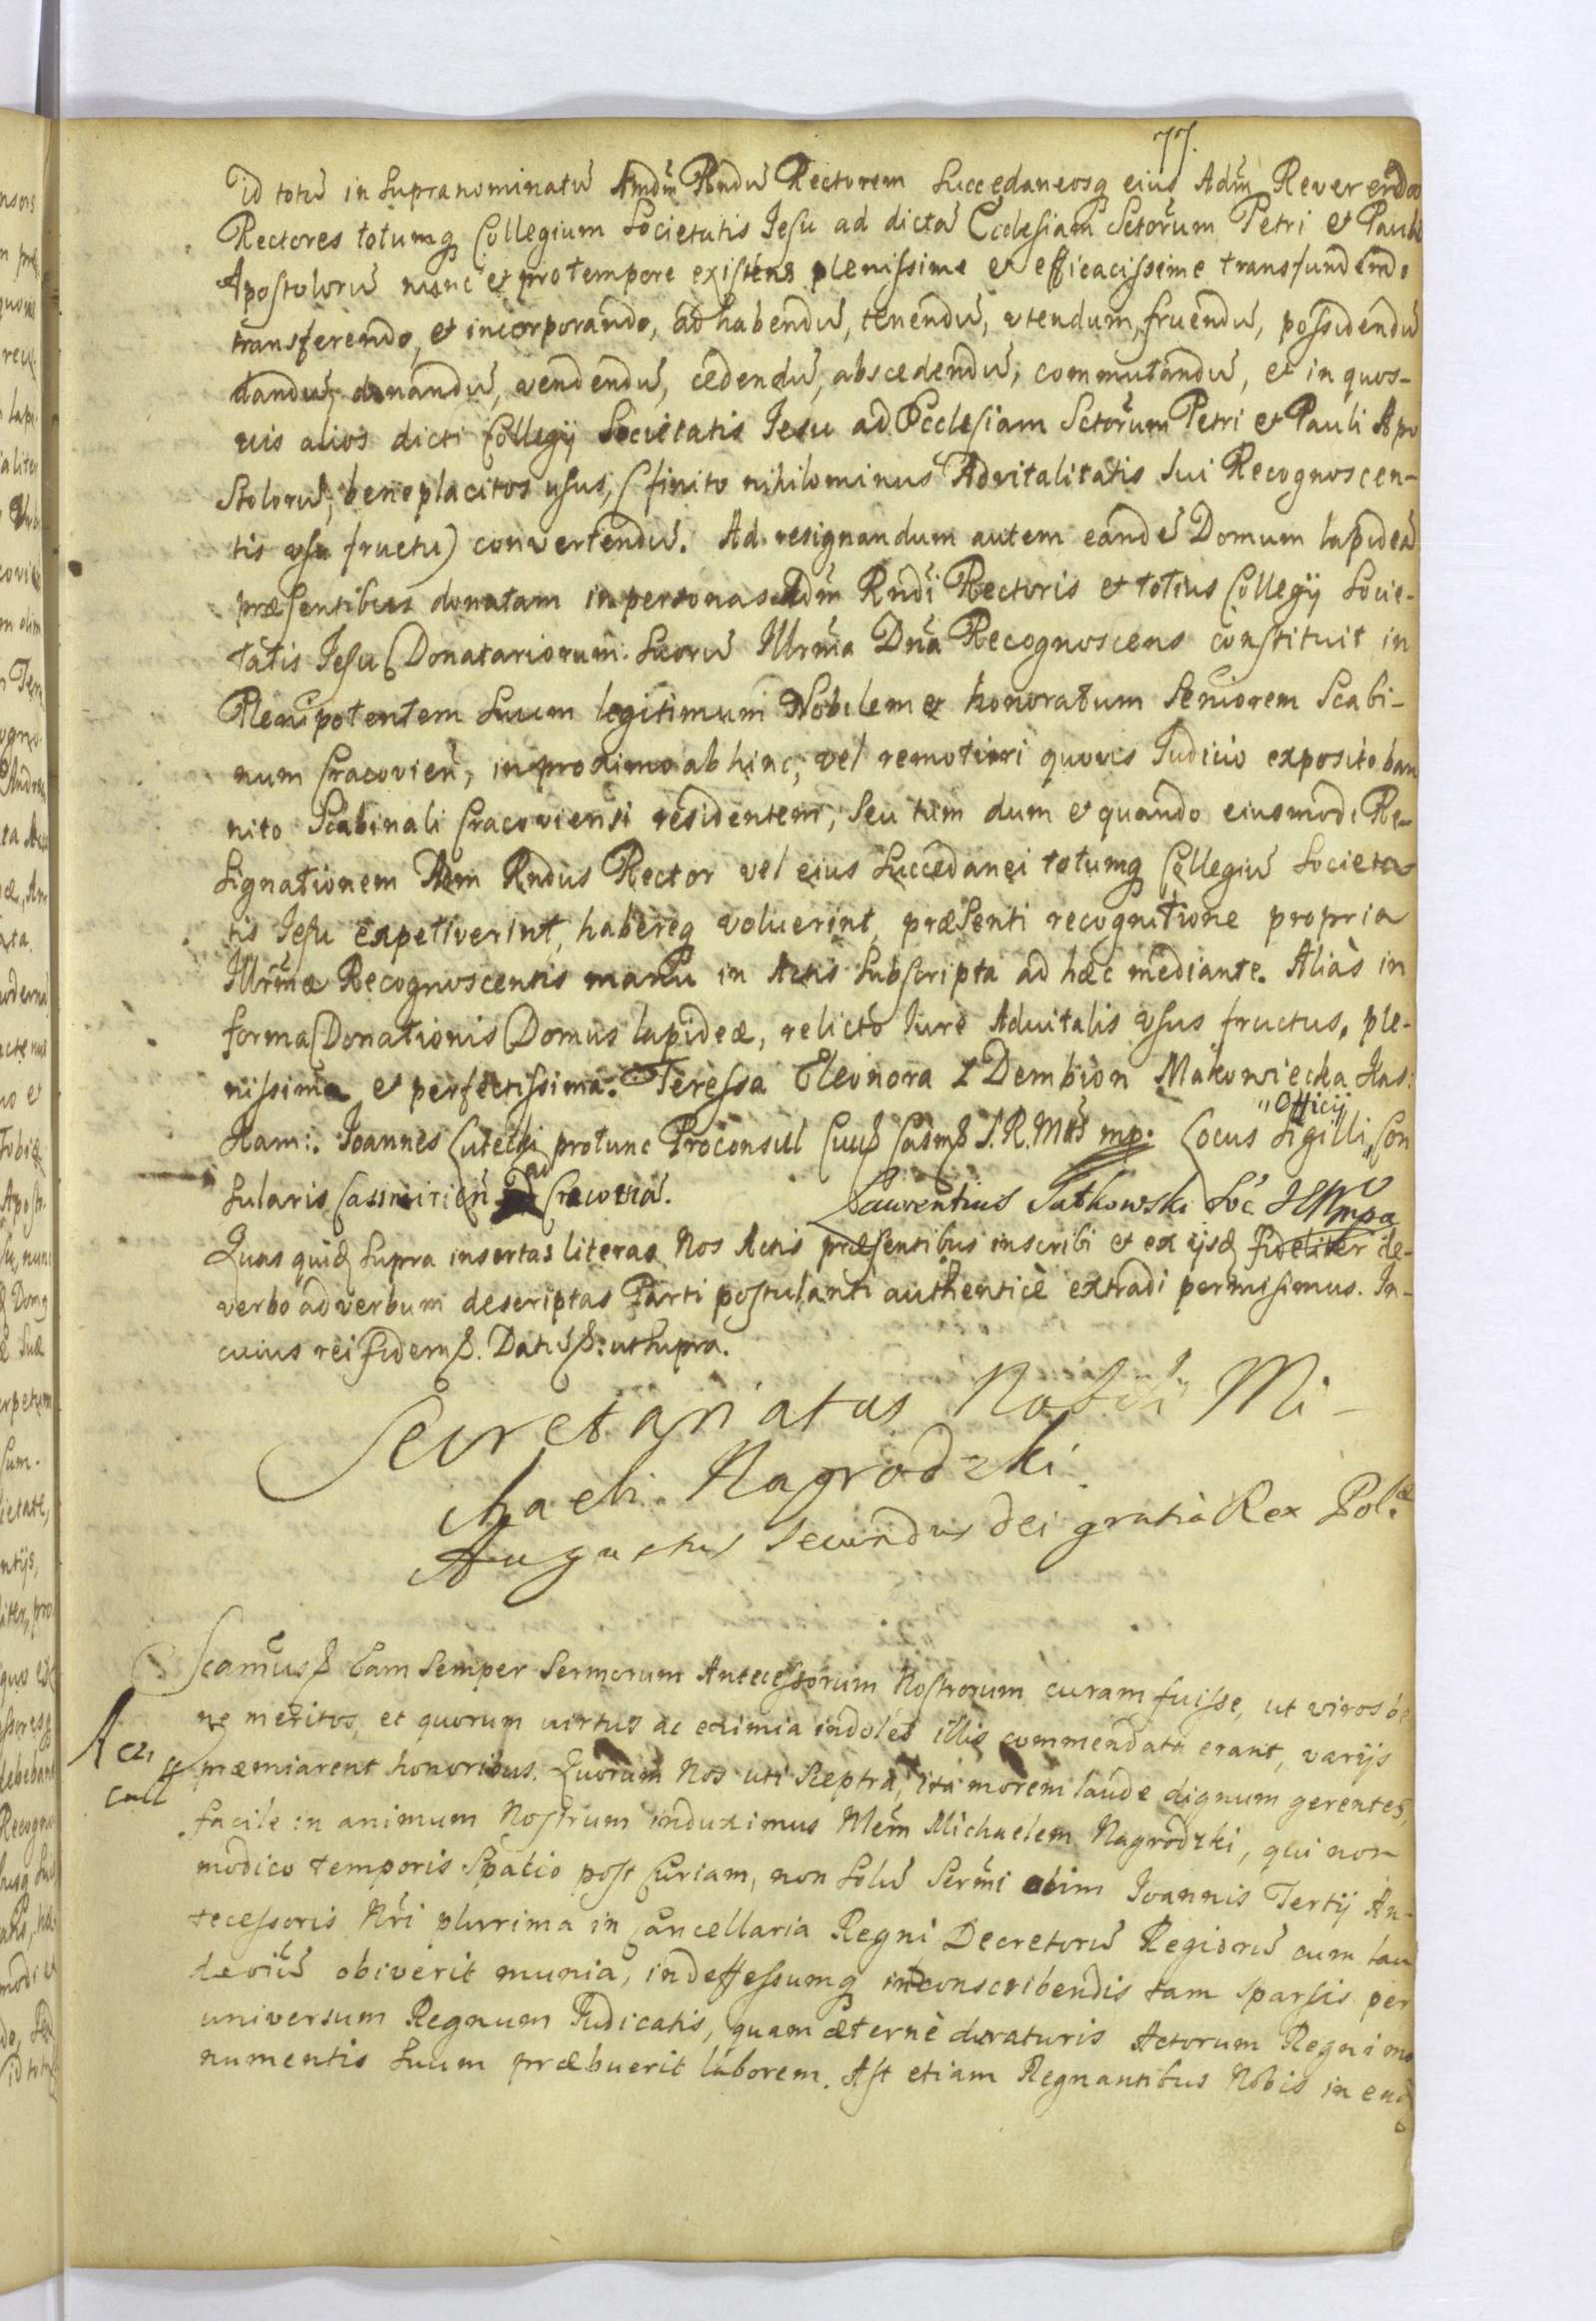 77.
id totũ in supranominatũ Amdm̃ Rndũ Rectorem succedaneosq eius Adm̃ Reverendos
Rectores totumq Collegium Societatis Iesu ad dictã Ecclesiam Sctorũm Petri et Pauli
Apostolorũ nunc et pro tempore existens plenissime et efficacissime transfundendo
transferendo, et incorporando, ad habendũ, tenendũ, utendum, fruendũ, possidendũ
dandũ, donandũ, vendendũ, cedendũ, abscedendũ, commutandũ, et in quos-
vis alios dicti Collegij Societatis Iesu ad Ecclesiam Sctorũm Petri et Pauli Apo
stolorũ, beneplacitos usus, (finito nihilominus Advitalitatis sui Recognoscen-
tis usu fructu) convertendũ. Ad resignandum autem eandẽ Domum lapideã
præsentibus donatam in personas Adm̃ Rndĩ Rectoris et totius Collegij Socie-
tatis Iesu Donatariorum suorũ Illrm̃a Dnã Recognoscens constituit in
Plenipotentem suum legitimum Nobilem et honoratum Seniorem Scabi-
num Cracovieñ, in proximo abhinc, vel remotiori quovis Iudicio exposito ban
nito Scabinali Cracoviensi residentem, seu tum dum et quando eiusmodi Re-
signationem Adm Rndus Rector vel eius succedanei totumq Collegiũ Societa
tis Iesu expetiverint, habereq voluerint, præsenti recognitione propria
Illrm̃æ Recognoscentis manu in Actis subscripta ad hæc mediante. Aliàs in
forma Donationis Domus lapideæ, relicto iure Advitalis usus fructus, ple-
nissima et perfectissima. Teressa Eleonora z Dembion Makowiecka Kas:
Kam:. Ioannes Cutelli protunc Proconsul S.R.Mtis mp. Locus Sigilli "Officij" Con
sularis Casimirieñ ad Cracoviã. Laurentius Satkowski Soc̃ IESU mpa
Quas quidẽ supra insertas literas Nos Actis præsentibus inscribi et ex ijsd fideliter de-
verbo ad verbum descriptas Parti postulanti authenticè extradi permisimus. In-
cuius rei fidem ß. Dat: ut supra.
Secretariatus Nobili Mi-
chaeli Nagrodzki
Augustus Secundus dei gratia Rex Pol:æ
Scamũs ß Eam semper Sermorum Antecessorum Nostrorum curam fuisse, ut viros be
ne meritos, et quorum virtus ac eximia indoles illis commendata erant, varijs
præmiarent honoribus. Quorum Nos uti sceptra, ita morem laude dignum gerentes,
facile in animum Nostrum induximus Michaelem Nagrodzki, qui non
modico temporis spatio post Curiam, non solũ Serm̃i olim Ioannis Tertij An-
tecessoris Nrĩ plurima in Cancellaria Regni Decretorũ Regiorũ cum lau
de obiverit munia, indeffessumq in conscribendis tam sparsis per
universum Regnum Iudicatis, quam æternè duraturis Actorum Regni mo
numentis suum præbuerit laborem. Ast etiam Regnantibus Nobis in eadẽ